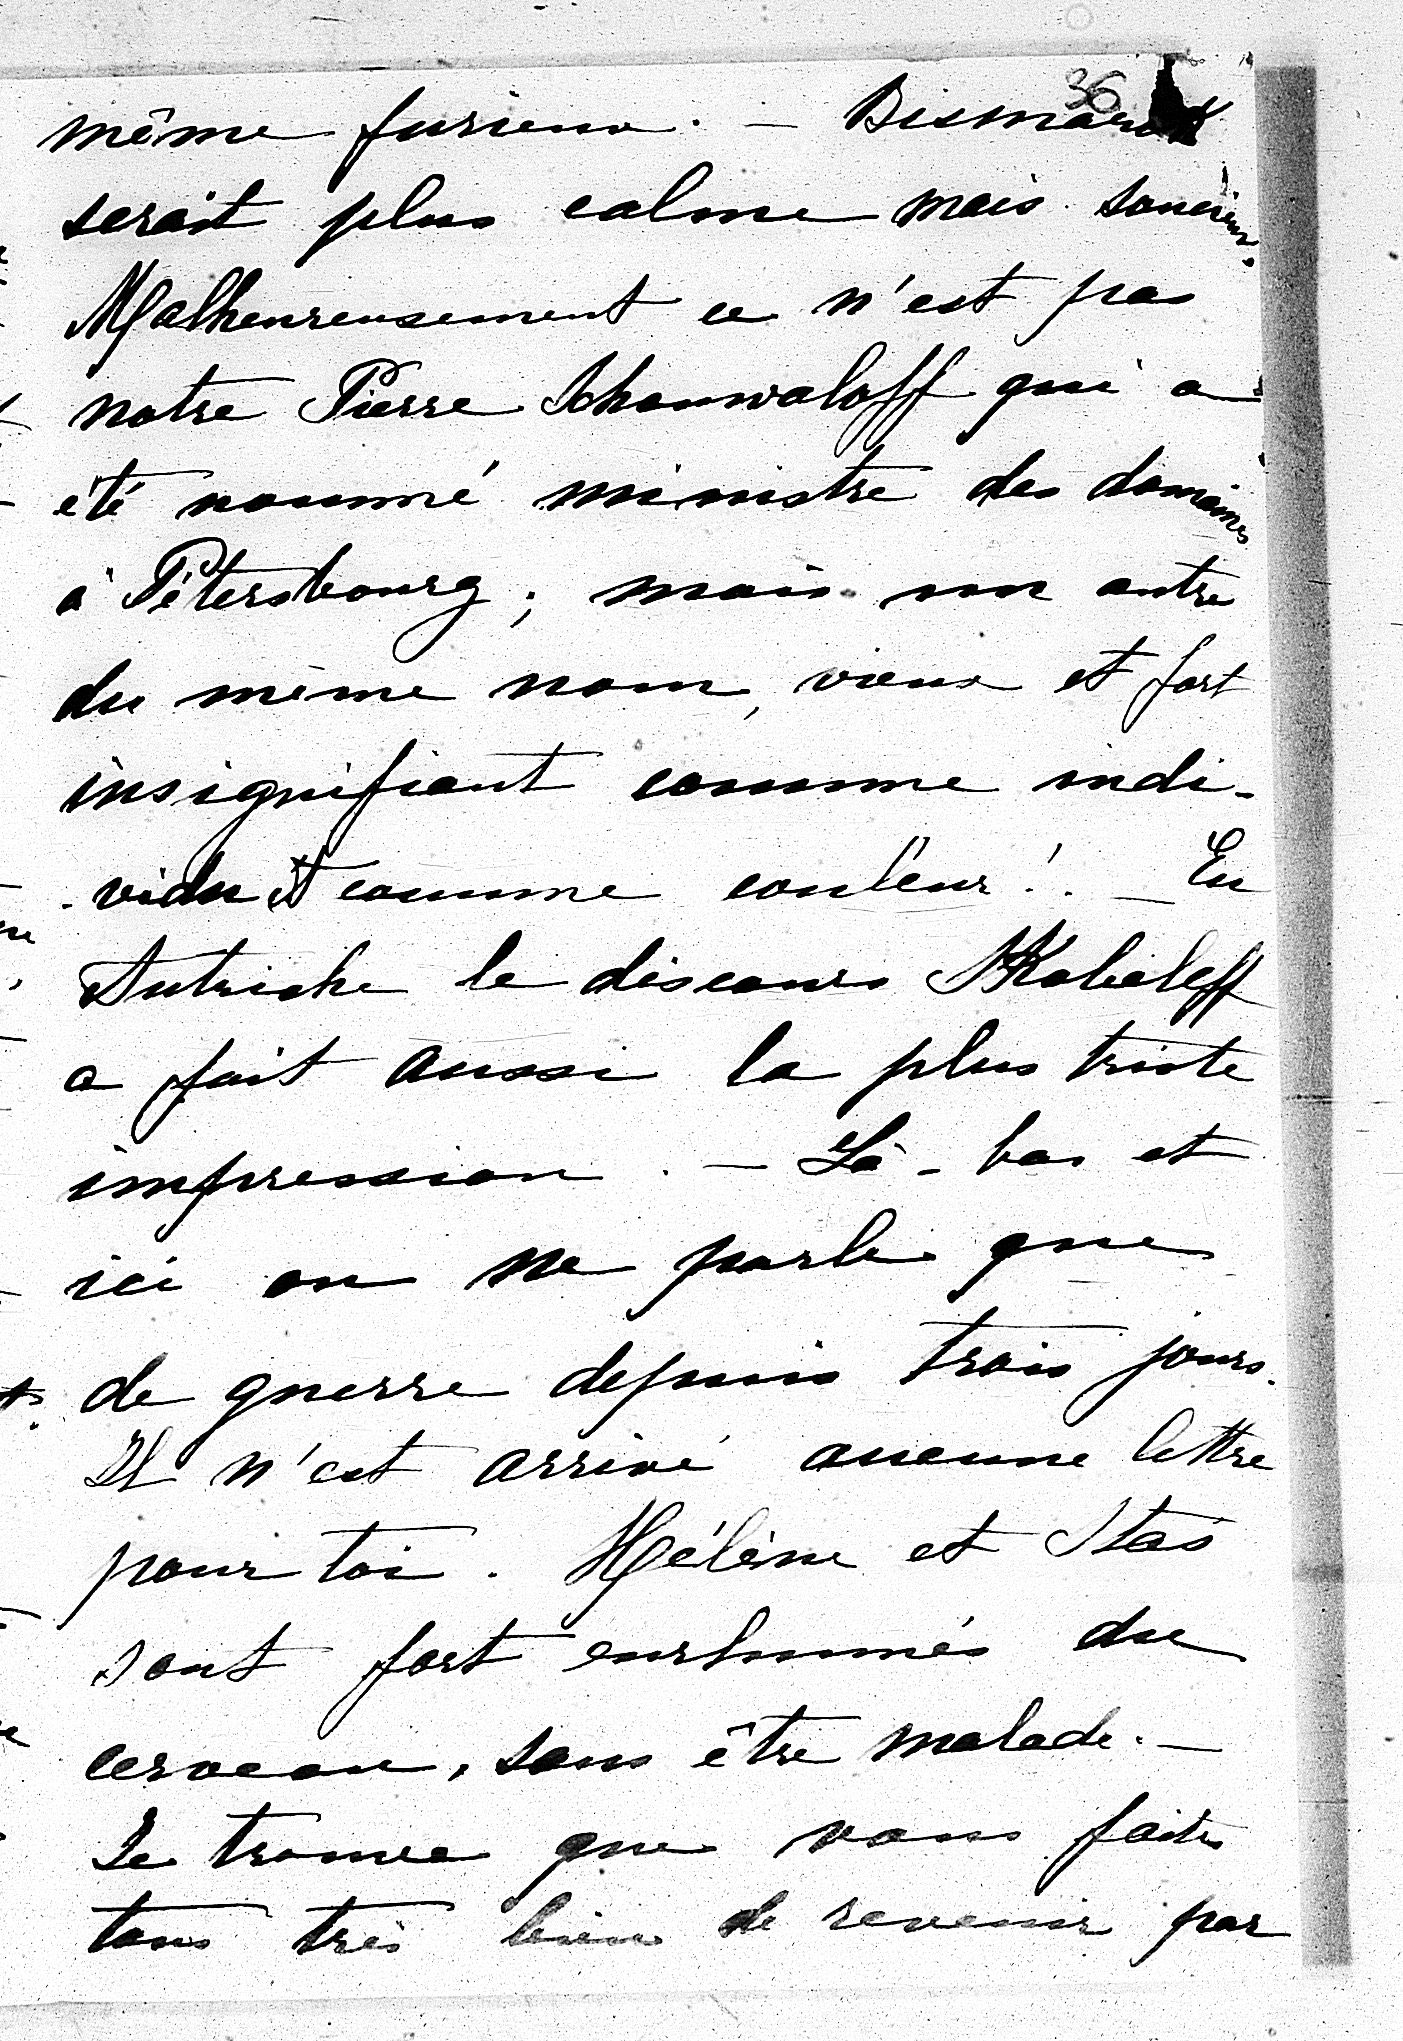 36
même furieux. — Bismarck
serait plus calme mais soucieux.
Malheureusement ce n'est pas
notre Pierre Schouwaloff qui a
été nommé ministre des domaines
à Pétersbourg; mais un autre
du même nom, vieux et fort
insignifiant comme indi-
vidu et comme couleur! — En
Autriche le discours Skobeleff
a fait aussi la plus triste
impression. — Là-bas et
ici on ne parle que
de guerre depuis trois jours.
Il n'est arrivé aucune lettre
pour toi. Hélène et Stas
sont fort enrhumés du
cerveau, sans être malade. —
Je trouve que vous faites
tous très bien de revenir par